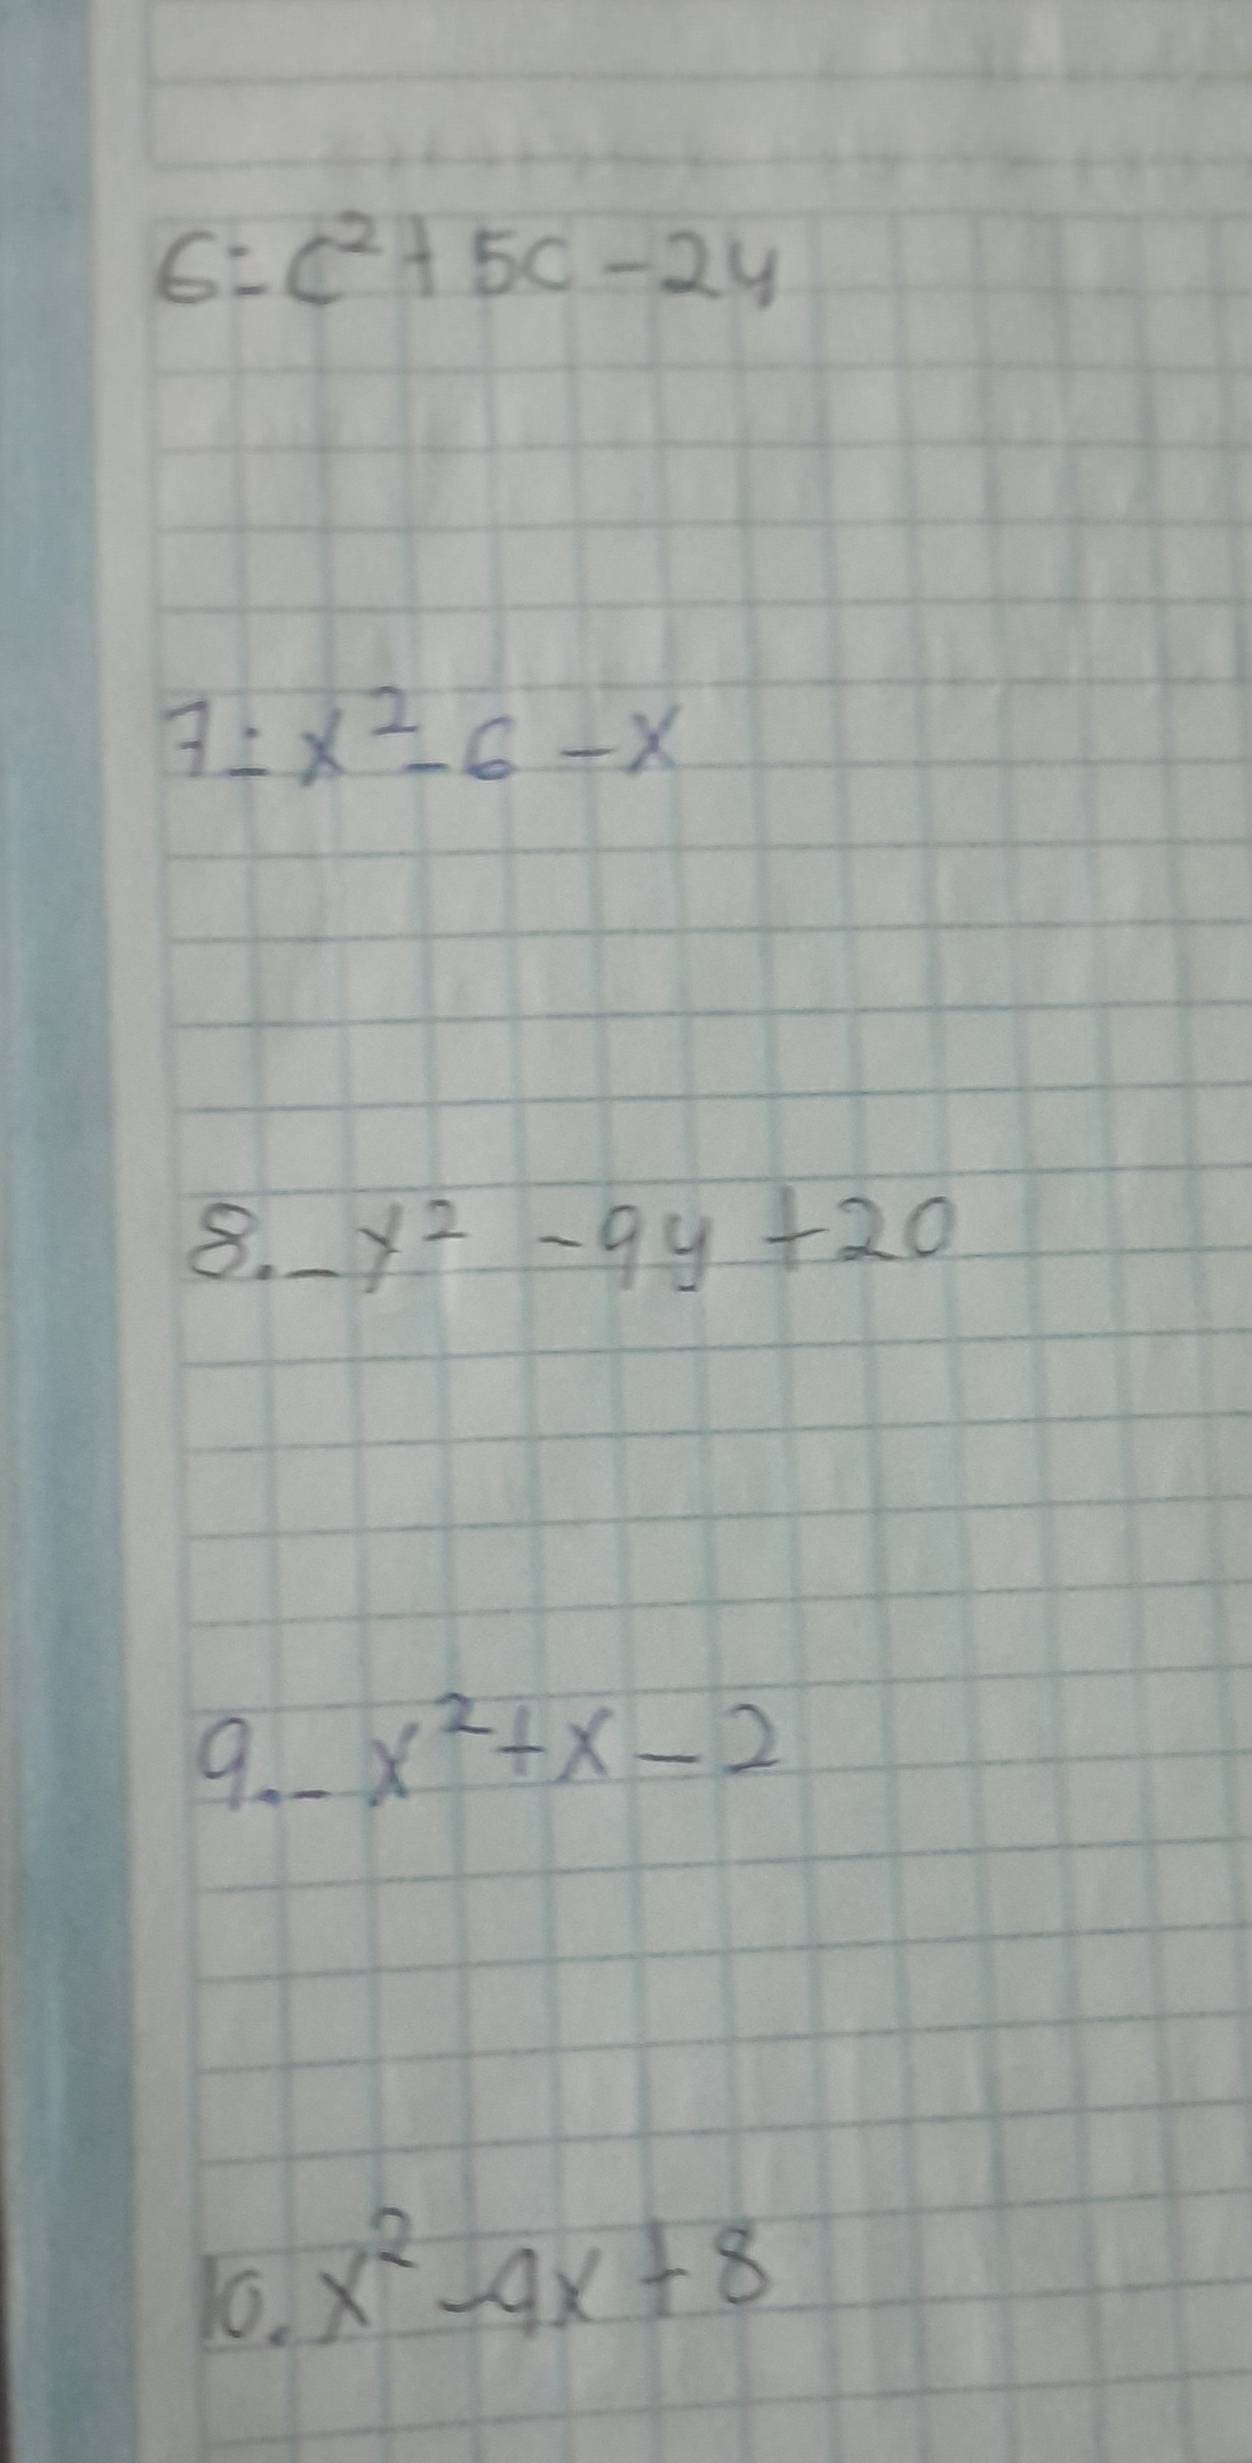 6.- c² + 5c - 24
7.- x² - 6 - x
8.- y² - 9y + 20
9.- x² + x - 2
10. x² - 9x + 8